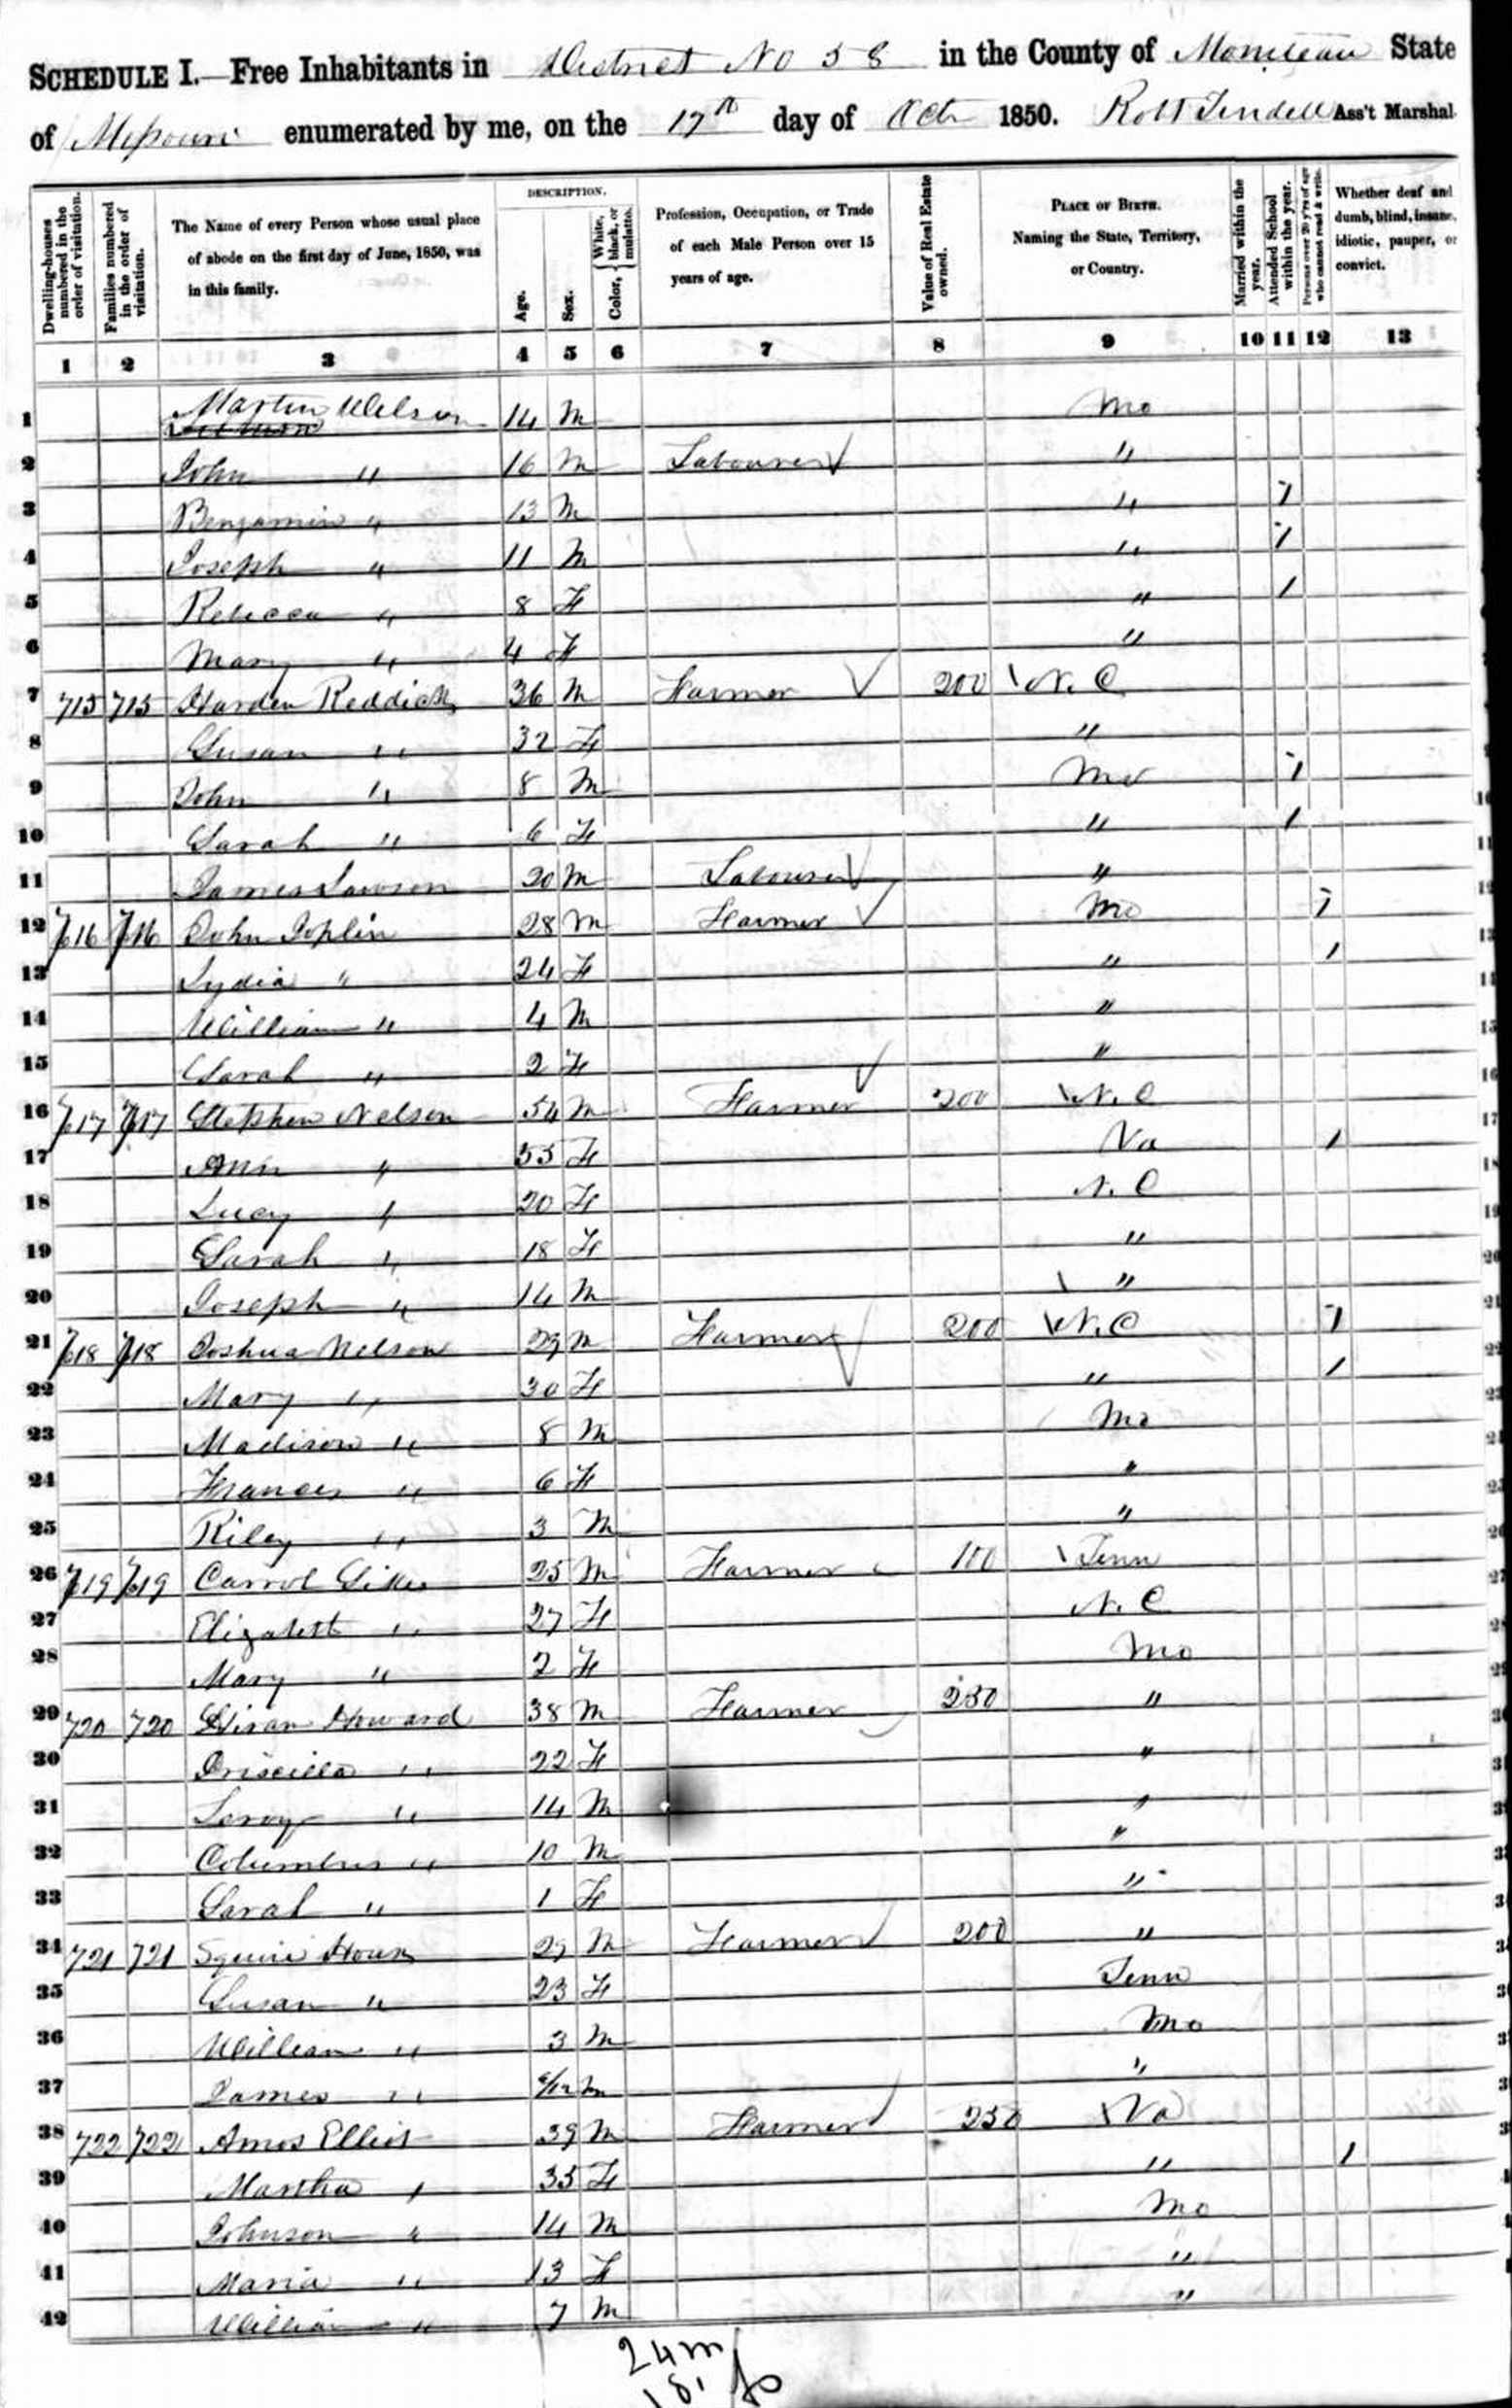 SCHEDULE I.—Free Inhabitants in District No 58 in the County of Moniteau State
of Missouri enumerated by me, on the 17th day of Oct 1850. Robt Tindell Ass't Marshal.
Dwelling-houses numbered in the order of visitation.
Families numbered in the order of visitation.
The Name of every Person whose usual place of abode on the first day of June, 1850, was in this family.
DESCRIPTION.
Age.
Sex.
Color, White, black, or mulatto.
Profession, Occupation, or Trade of each Male Person over 15 years of age.
Value of Real Estate owned.
PLACE OF BIRTH. Naming the State, Territory, or Country.
Married within the year.
Attended School within the year.
Persons over 20 y'rs of age who cannot read & write.
Whether deaf and dumb, blind, insane, idiotic, pauper, or convict.
1 2 3 4 5 6 7 8 9 10 11 12 13
1 Martin Wilson 14 M Mo
2 John " 16 M Labourer "
3 Benjamin " 13 M " 1
4 Joseph " 11 M " 1
5 Rebecca " 8 F " 1
6 Mary " 4 F "
7 715 715 Harden Reddick 36 M Farmer 200 N. C
8 Susan " 32 F "
9 John " 8 M Mo 1
10 Sarah " 6 F " 1
11 James Lawson 20 M Labourer "
12 716 716 John Joplin 28 M Farmer Mo 1
13 Lydia " 24 F " 1
14 William " 4 M "
15 Sarah " 2 F "
16 717 717 Stephen Nelson 54 M Farmer 200 N. C
17 Ann " 55 F Va 1
18 Lucy " 20 F N. C
19 Sarah " 18 F "
20 Joseph " 14 M "
21 718 718 Joshua Nelson 29 M Farmer 200 N. C 1
22 Mary " 30 F " 1
23 Madison " 8 M Mo
24 Frances " 6 F "
25 Riley " 3 M "
26 719 719 Carrol 25 M Farmer 100 Tenn
27 Elizabeth " 27 F N. C
28 Mary " 2 F Mo
29 720 720 Hiram Howard 38 M Farmer 250 "
30 Priscilla " 22 F "
31 Leroy " 14 M "
32 Columbus " 10 M "
33 Sarah " 1 F "
34 721 721 Squire 29 M Farmer 200 "
35 Susan " 23 F Tenn
36 William " 3 M Mo
37 James " M "
38 722 722 Amos Elliot 39 M Farmer 250 Va
39 Martha " 35 F " 1
40 Johnson " 14 M Mo
41 Maria " 13 F "
42 William " 7 M "
24 m
18